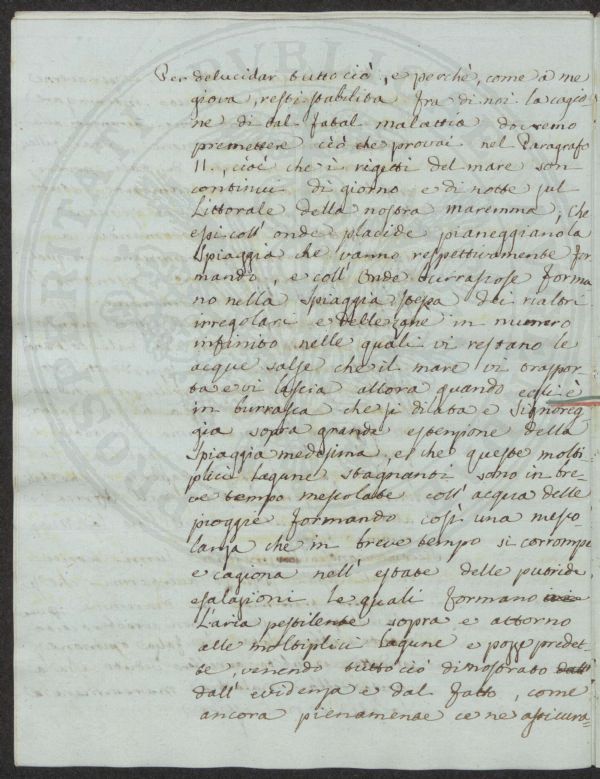 Per delucidar tutto ciò, e perchè, come a me
giova, resti stabilita fra di noi la cagio
ne di tal fatal malattia dovremo
premettere ciò che provai nel Paragrafo
II., cioè che i rigetti del mare son
continui di giorno e di notte sul
Littorale della nostra maremma, che
essi coll' onde placide pianeggiano la
Spiaggia che vanno respettivamente for
mando, e coll' Onde burrascose forma
no nella Spiaggia stessa dei rialti
irregolari e delle zane in numero
infinito nelle quali vi restano le
acque salse che il mare vi traspor
ta e vi lascia allora quando egli è
in burrasca che si dilata e Signoreg
gia sopra grande estensione della
spiaggia medesima, e che queste molti-
plici lagune stagnanti sono in bre-
ve tempo mescolate coll' acqua delle
pioggie formando così una mesco
lanza che in breve tempo si corrompe
e cagiona nell' estate delle putride
esalazioni le quali formano
L'aria pestilente sopra e attorno
alle moltiplici lagune e pozze predet-
te, venendo tutto ciò dimostrato dall'
dall' evidenza e dal fatto, come
ancora pienamenae ce ne assicura-
PROSPERITATI PVBLICAE